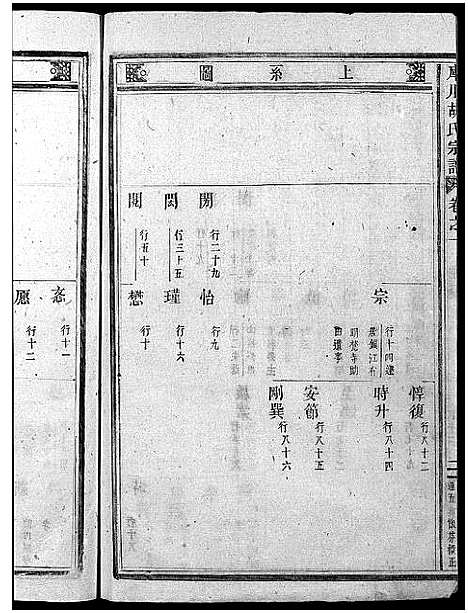 川胡氏宗譜 卷之一
上系圖
開 行二十九
閎 行三十五
閱 行五十
宗 行十四遷
怡 行九
瑾 行十六
懋 行十
惇復 行八十二
時升 行八十四
安節 行八十五
剛巽 行八十六
行十一
愿 行十二